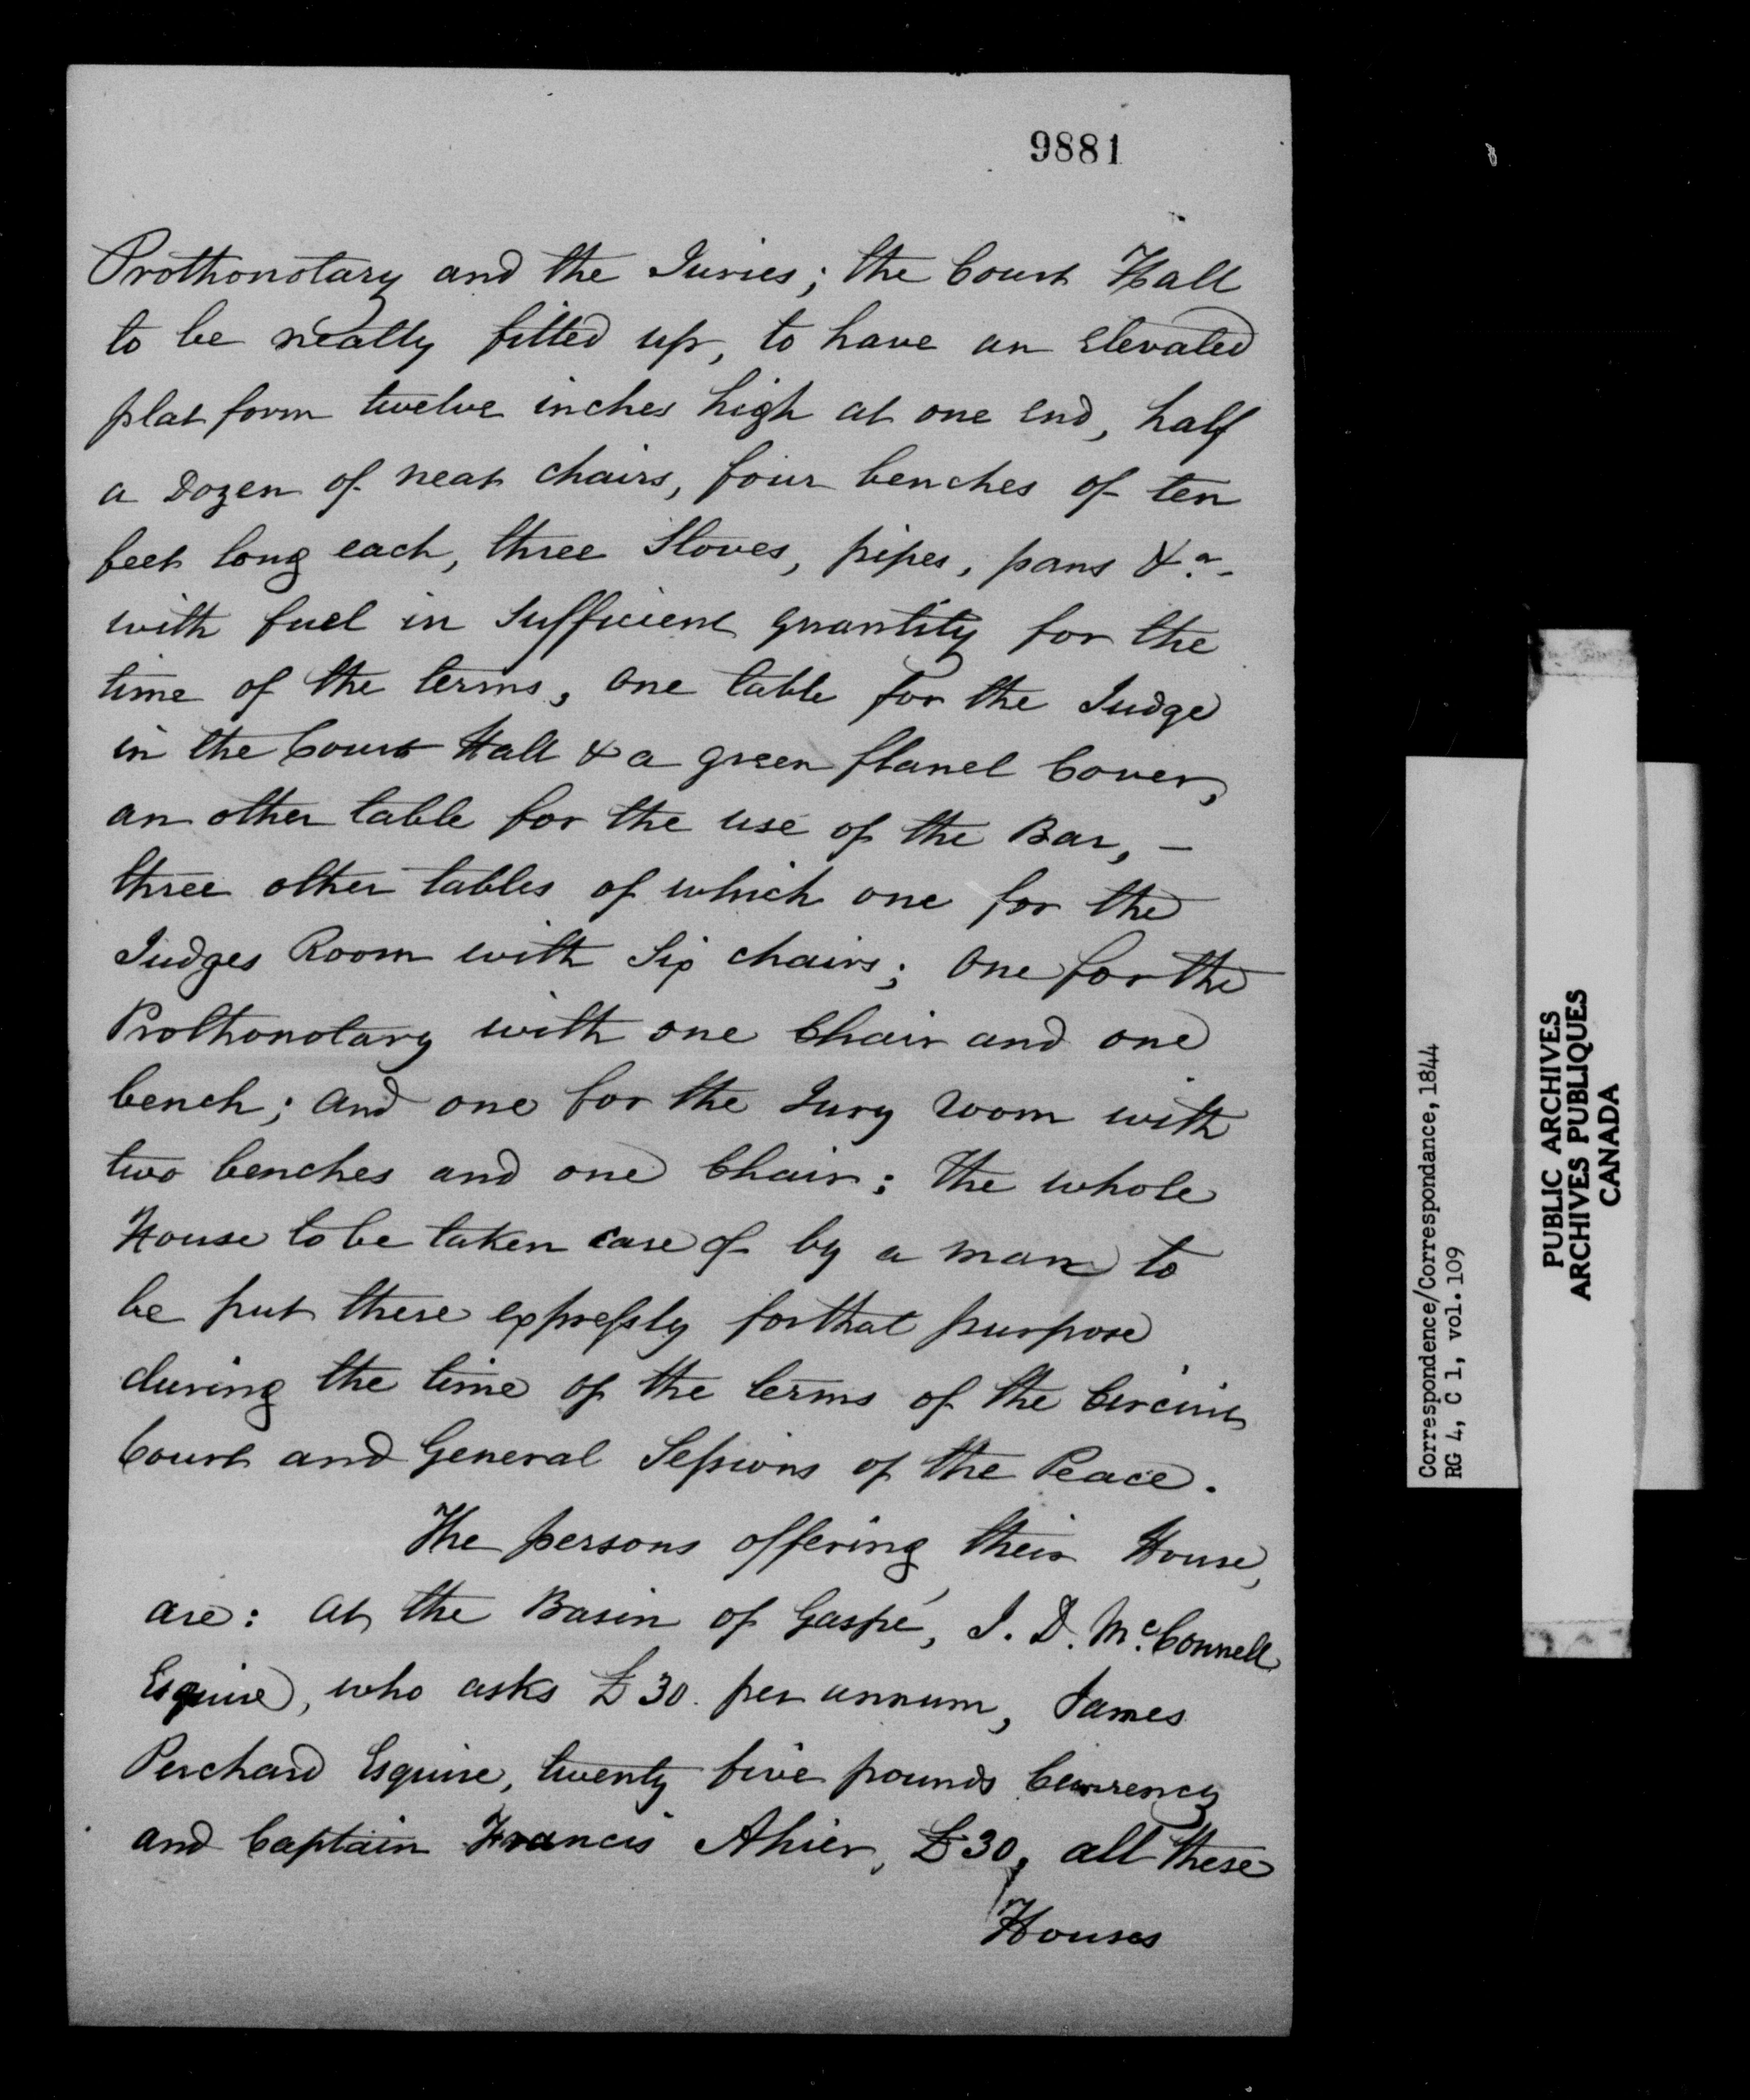 9881
Prothonotary and the Juries; the Court Hall
to be neatly fitted up, to have an elevated
plat form twelve inches high at one end, half
a Dozen of neat chairs, four benches of ten
feet long each, three Stoves, pipes, pans &a.
with fuel in Sufficient quantity for the
time of the terms, one table for the Judge
in the Court Hall & a green flanel Cover,
an other table for the use of the Bar, –
three other tables of which one for the
Judges Room with Six chairs; One for the
Prothonotary with one Chair and one
bench; and one for the Jury Room with
two benches and one Chair: The whole
House to be taken care of by a man to
be put there expressly for that purpose
during the time of the terms of the Circuit
Court and General Sessions of the Peace.
The persons offering their House,
are: At the Basin of Gaspé, J. D. McConnell
Esquire, who asks £30. per annum, James
Perchard Esquire, twenty five pounds Currency
and Captain Francis Ahier, £30, all these
Houses
Correspondence/Correspondance, 1844
RG 4, C 1, vol. 109
PUBLIC ARCHIVES
ARCHIVES PUBLIQUES
CANADA